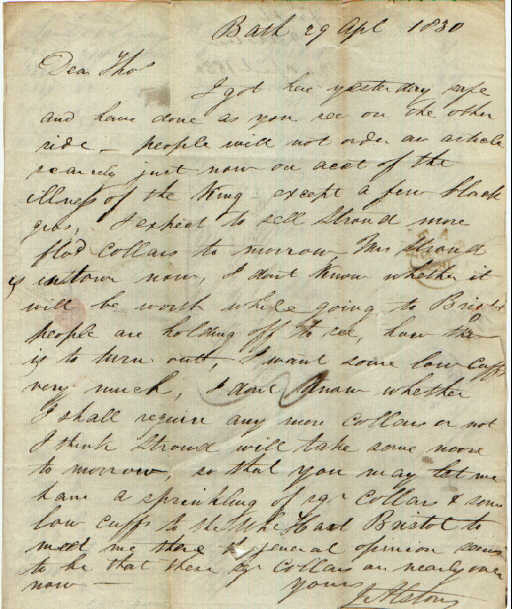 Bath 29 Apl 1830
Dear Thos
I got here yesterday safe
and have done as you see on the other
side - people will not order an article
scarcely just now on acct of the
illness of the King except a few black
, I expect to sell Stroud more
collars to morrow, Mrs Stroud
is in town now, I dont know whether it
will be worth while going to Bristol
people are holding off to see, how this
is to turn out, I want some low cuffs
very much, I dont know whether
I shall require any more collars or not
I think Stroud will take some more
to morrow, so that you may let me
have a sprinkling of sqr Collars & some
low cuffs to the White Hart Bristol to
meet me there the general opinion seems
to be that these sqr Collars are nearly over
now -
yours
Jn Alston